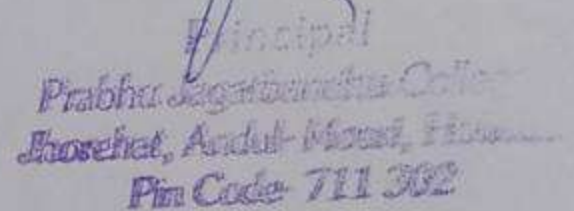 Principal
Prabhu Jagatbandhu College
Jhorehat, Andul-Mouri,
Pin Code- 711 302